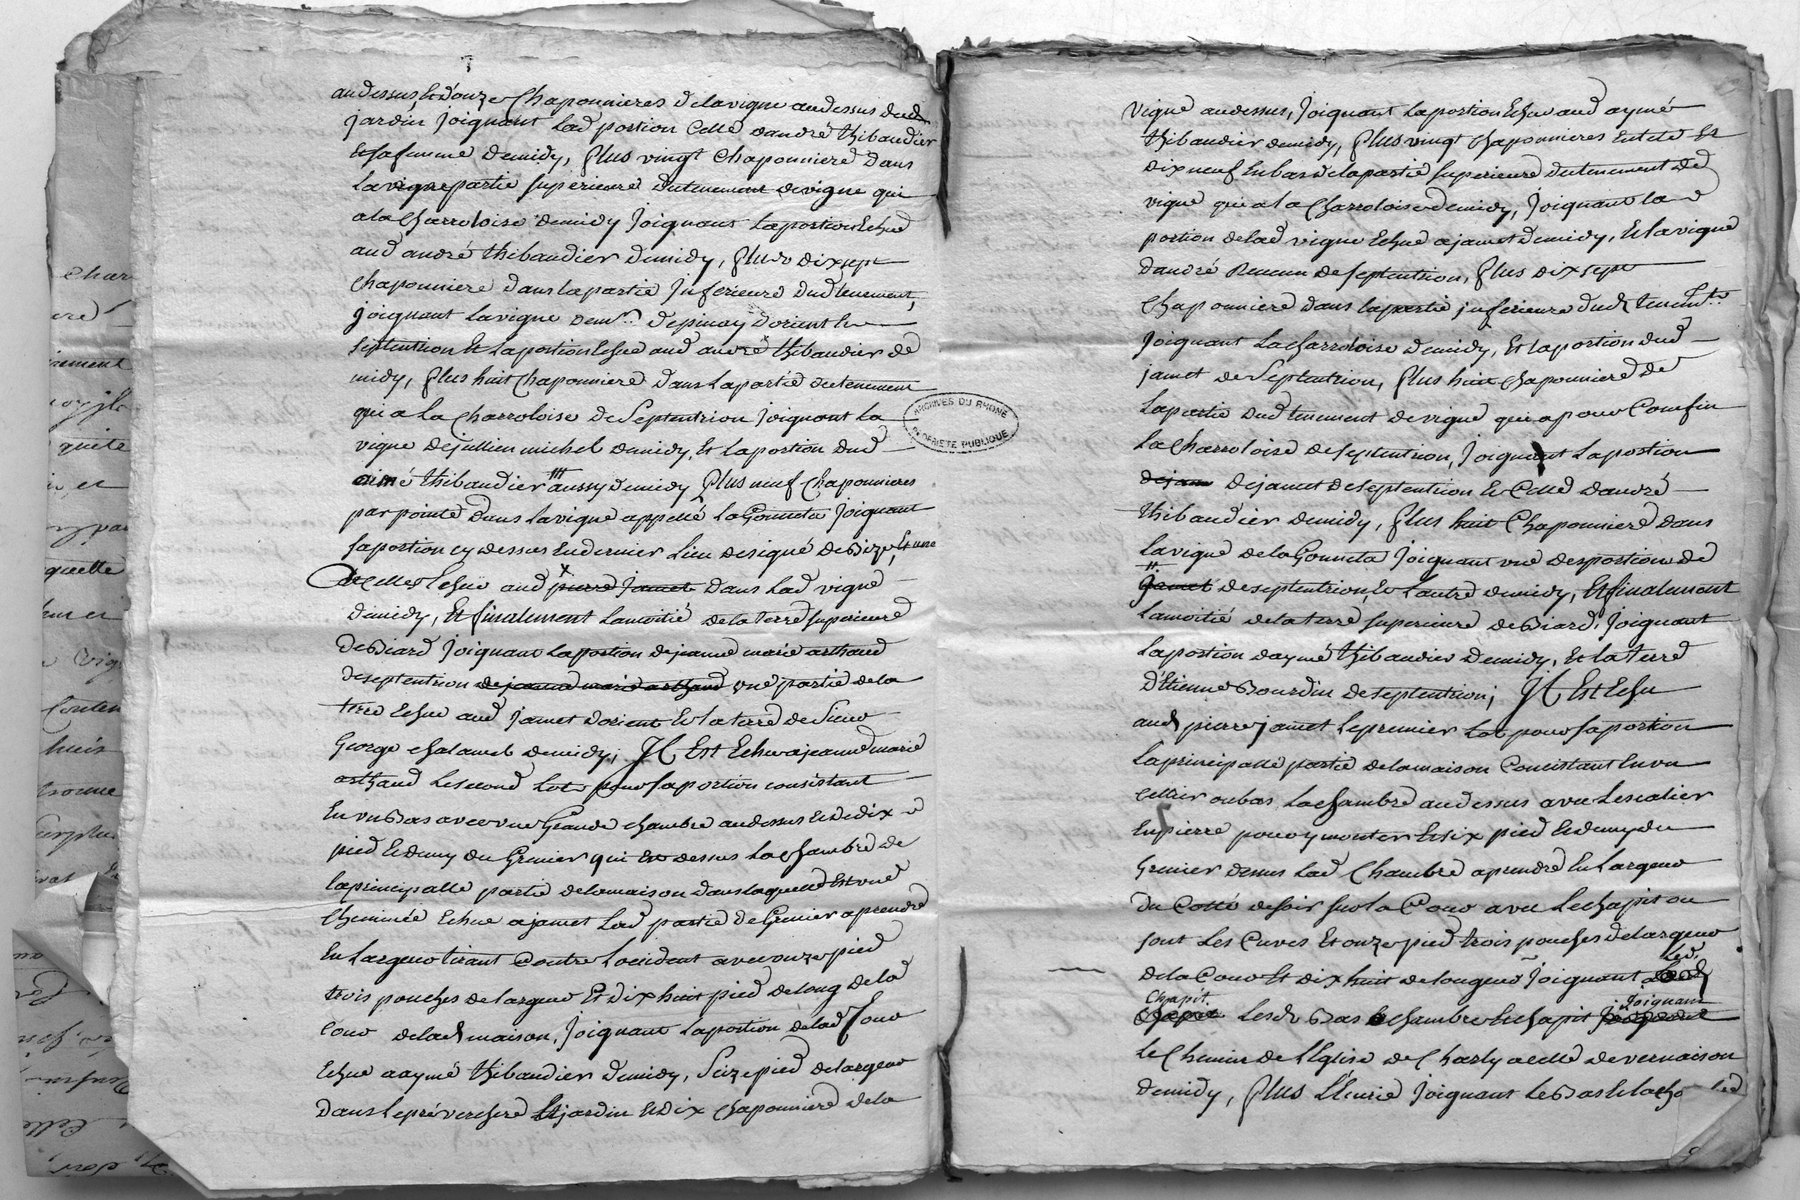 au dessus, Et d'onze Chaponnieres dela vigne au dessus dud
jardin joignant lad portion Celle dandré thibaudier
Et sa femme demidy, plus vingt Chaponniere dans
la vigne partie superieure du tenement de vigne qui
a la Charroloise demidy joignant la portion Echue
aud andré thibaudier demidy, plus dix sept
Chaponniere dans la partie inferieure dud tenement,
joignant la vigne dem.r d'epinay d'orient
septentrion Et la portion Echue aud andré thibaudier de
midy, plus huit Chaponniere dans la partie du tenement
qui a la Charroloise de Septentrion joignant la
vigne de jullien michel demidy, Et la portion dud
aimé thibaudier aussy demidy plus neuf Chaponnieres
par pointe dans la vigne appellé la Gonneta joignant
sa portion cy dessus En dernier Lieu designé de Bize, Et une
de Celles Echue aud pierre jamet dans lad vigne
demidy, Et finalement la moitié dela terre superieure
de Biard joignant la portion de jeanne marie arthaud
de septentrion de jeanne marie arthaud une partie de la
terre Echue aud jamet d'orient Et la terre de Sieur
George chalamel demidy; Il Est Echu a jeanne marie
arthaud Le second Lot pour sa portion consistant
En un Bas avec une Grande chambre au dessus Et de dix
pied Et demy du Grenier qui Est dessus La chambre de
la principalle partie dela maison dans laquelle Est une
Cheminée Echue a jamet Lad partie de Grenier a prendre
En Largeur tirant Contre Locident avec onze pied
trois pouches de largeur Et dix huit pied de long de la
Cour de lad maison, joignant la portion de lad Cour
Echue a aymé thibaudier demidy, Seize pied de largeur
dans le pré verchere Et jardin Et dix Chaponniere dela
ARCHIVES DU RHONE
PROPRIETE PUBLIQUE
vigne au dessus, joignant la portion Echue aud aymé
thibaudier demidy, plus vingt Chaponnieres En tete Et
dix neuf En bas dela partie superieure du tenement de
vigne qui a la Charroloise demidy, joignant la
portion de lad vigne Echue a jamet demidy, Et la vigne
dandré de septentrion, plus dix sept
Chaponniere dans la partie inferieure dud tenement
joignant la Charroloise demidy, Et la portion dud
jamet de Septentrion, plus huit Chaponniere de
la partie dud tenement de vigne qui a pour Confin
la Charroloise de septentrion, joignant la portion
de jam de jamet de septentrion Et Celle dandré
thibaudier demidy, plus huit Chaponniere dans
la vigne de la Gonneta joignant une des portion de
jamet de septentrion, Et Lautre demidy, Et finalement
la moitié de la terre superieure de Biard, joignant
la portion daymé thibaudier demidy, Et la terre
d'Etienne Bourdin de septentrion; Il Est Echu
aud pierre jamet Le premier Lot pour sa portion
la principalle partie dela maison Concistant En un
Cellier ou bas La chambre au dessus avec Lescalier
En pierre pour y monter Et dix pied Et demy du
Grenier dessus lad Chambre a prendre En Largeur
du Cotté de soir sur la Cour avec Le chapit ou
sont Les Cuves Et onze pied trois pouches de largeur
de la Cour Et dix huit de longeur joignant Led.
Chapit. Lesd Bas Chambre Et chapit joignant
Le Chemin de L'Eglise de Charly a celle de vernaison
demidy, plus L'Ecurie joignant Le Bas Et la